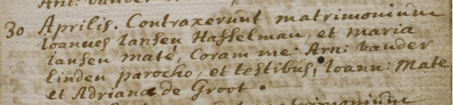 30 Aprilis. Contraxerunt matrimonium
Joannes Jansen Hasselman, et maria
Jansen maté, Coram me Arn: vander
linden parocho, et testibus, Joann: Mate
et Adriana de Groot.